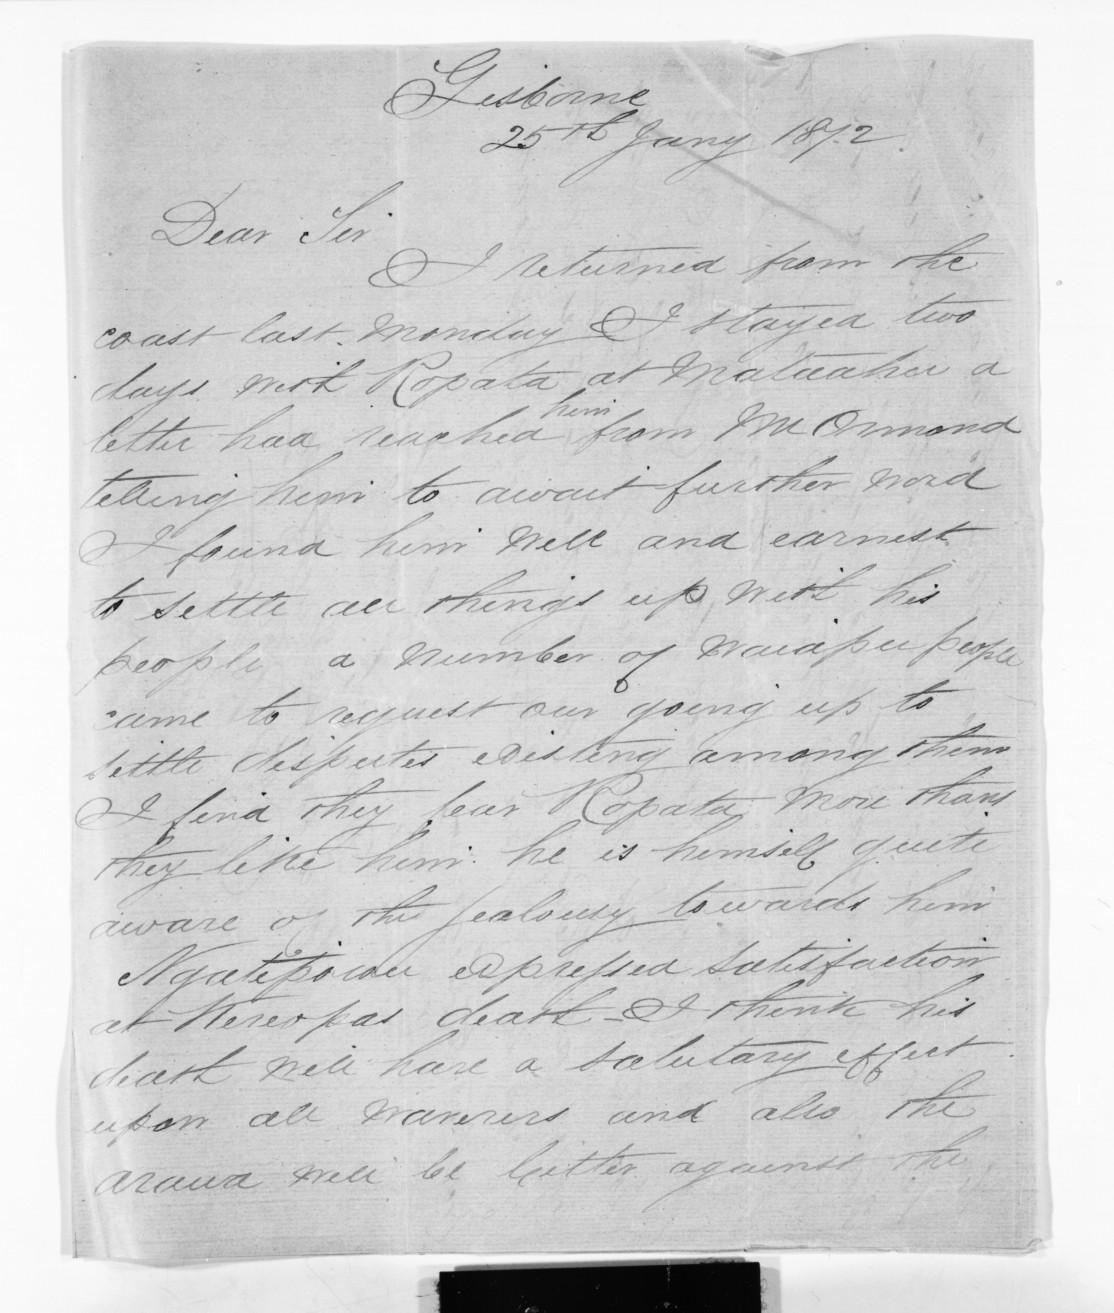 Gisborne
25th Jany 1872.
Dear Sir
I returned from the
coast last Monday I stayed two
days with Ropata at Mataahu a
letter had reached him from Mr Ormond
telling him to await further word
I found him well and earnest
to settle all things up with his
people a number of Waiapu people
came to request our going up to
settle disputes existing among them
I find they fear Ropata more than
they like him. he is himself quite
aware of the jealousy towards him
Ngatiporou expressed satisfaction
at Kereopas death - I think his
death will have a salutary effect
upon all waverers and also the
arawa will be better against the